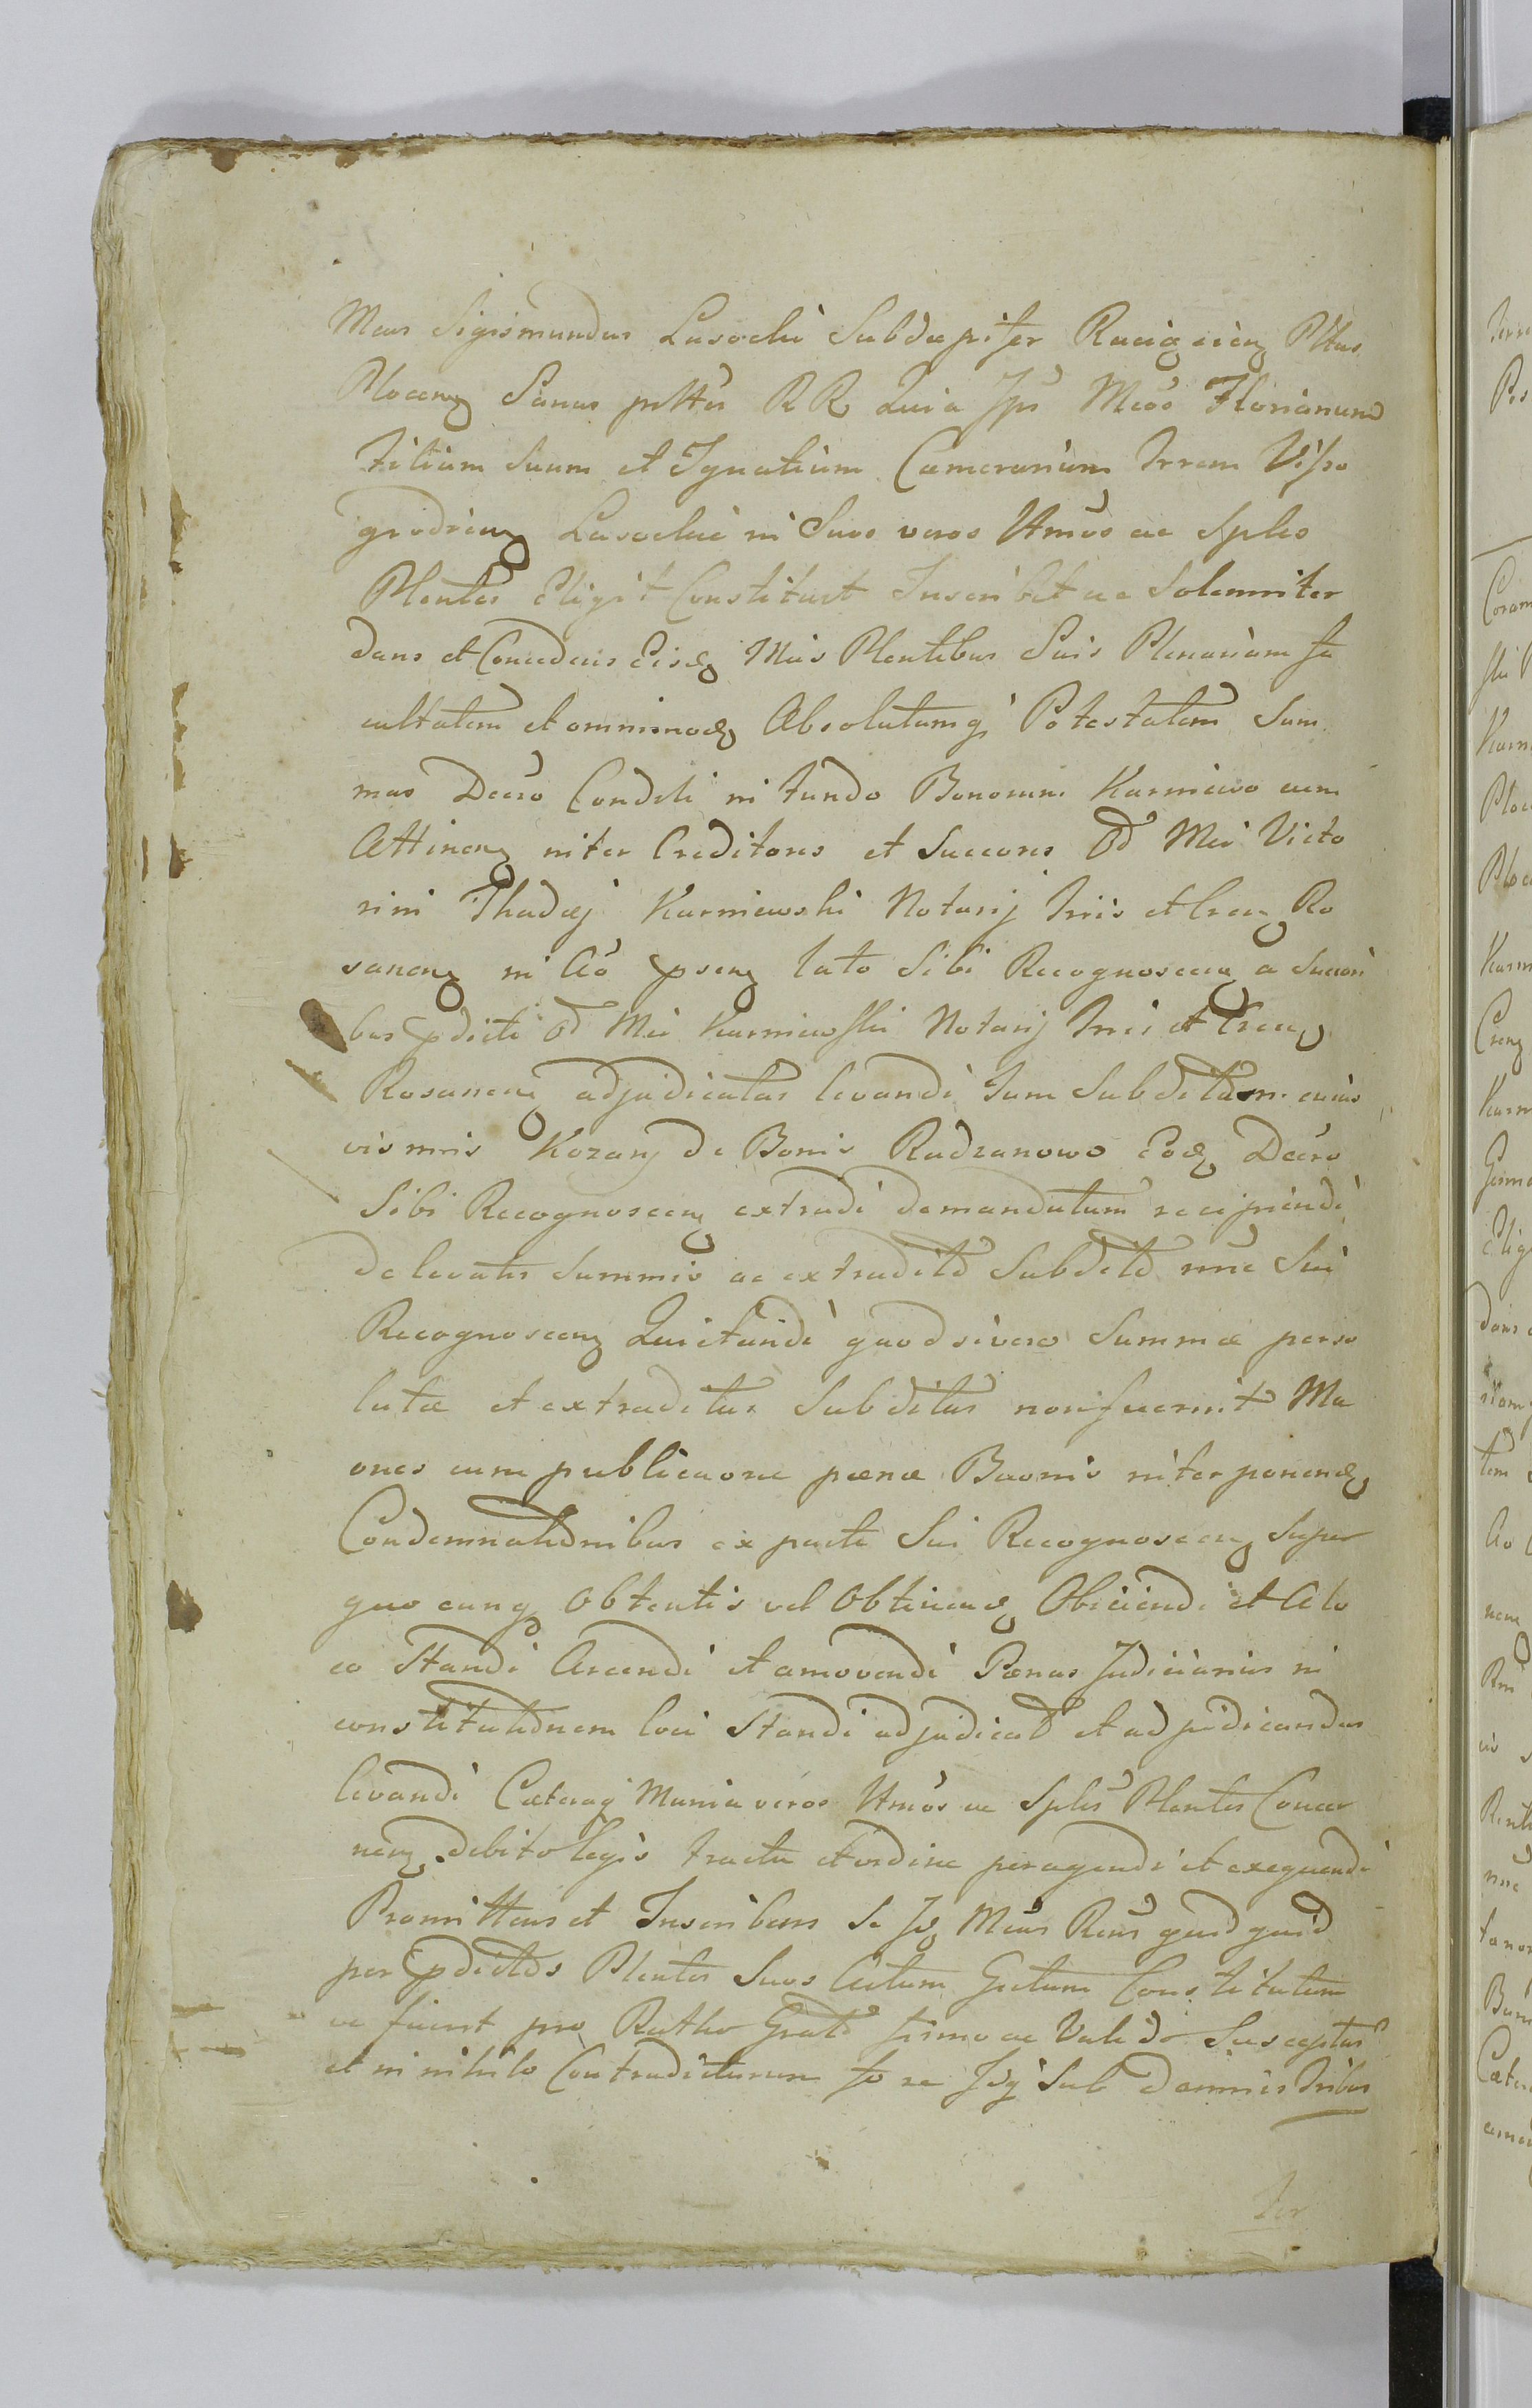 Mcus Sigismundus Lasocki Subdapifer Raciązien Pltus
Plocen Sanus prttus RR Quia Ips Mcos Florianum
Filium Suum et Ignatium Camerarium Trrem Visso
grodien Lasockie in Suos veros Ltmos ac Sples
Plentes Eligit Constituit Inscribit ac Solemniter
dans et Concedens Eisd Mcis Plentibus Suis Plenariam fa
cultatem et omnimod Absolutamq Potestatem Sum
mas Decro Condcti in fundo Bonorum Karniewo cum
Attinen inter Creditores et Succores Od Mci Victo
rini Thadej Karniewski Notarij Trris et Cren Ro
sanen in Ao psen lato Sibi Recognoscen a Succori
bus pdicti Od Mci Karniewski Notarij Trris et Cren
Rosanen adjudicatas levandi Tum Subditum cuius
vis mris Kozany de Bonis Radzanowo Eod Decro
Sibi Recognoscen extradi demandatum recipiendi
de levatis summis ac extradito Subdito nne Sui
Recognoscen Quietandi quodsi vero Summæ perso
lutæ et extraditus Subditus non fuerint Ma
ones cum publicaone pænæ Baonis interponend
Condemnationibus ex parte Sui Recognoscen Super
quocunq Obtentis vel Obtinend Obiciendi et A lo
co Standi Arcendi et amovendi Pænas Judiciarias in
constitutionem loci Standi adjudicat et adjudicandas
levandi Cæteraq Munia veros Ltmos ac Sples Plentes Concer
nen debito legis tractu et ordine peragendi et exequendi
Promittens et Inscribens Se Id Mcus Rcns quidquid
per pdictos Plentes Suos Actum Gestum Constitutum
ve fuerit pro Ratho Grato firmo ac Valido Suscepturus
et in nihilo Contradicturum fore Idq Sub damnis Tribus
Ter